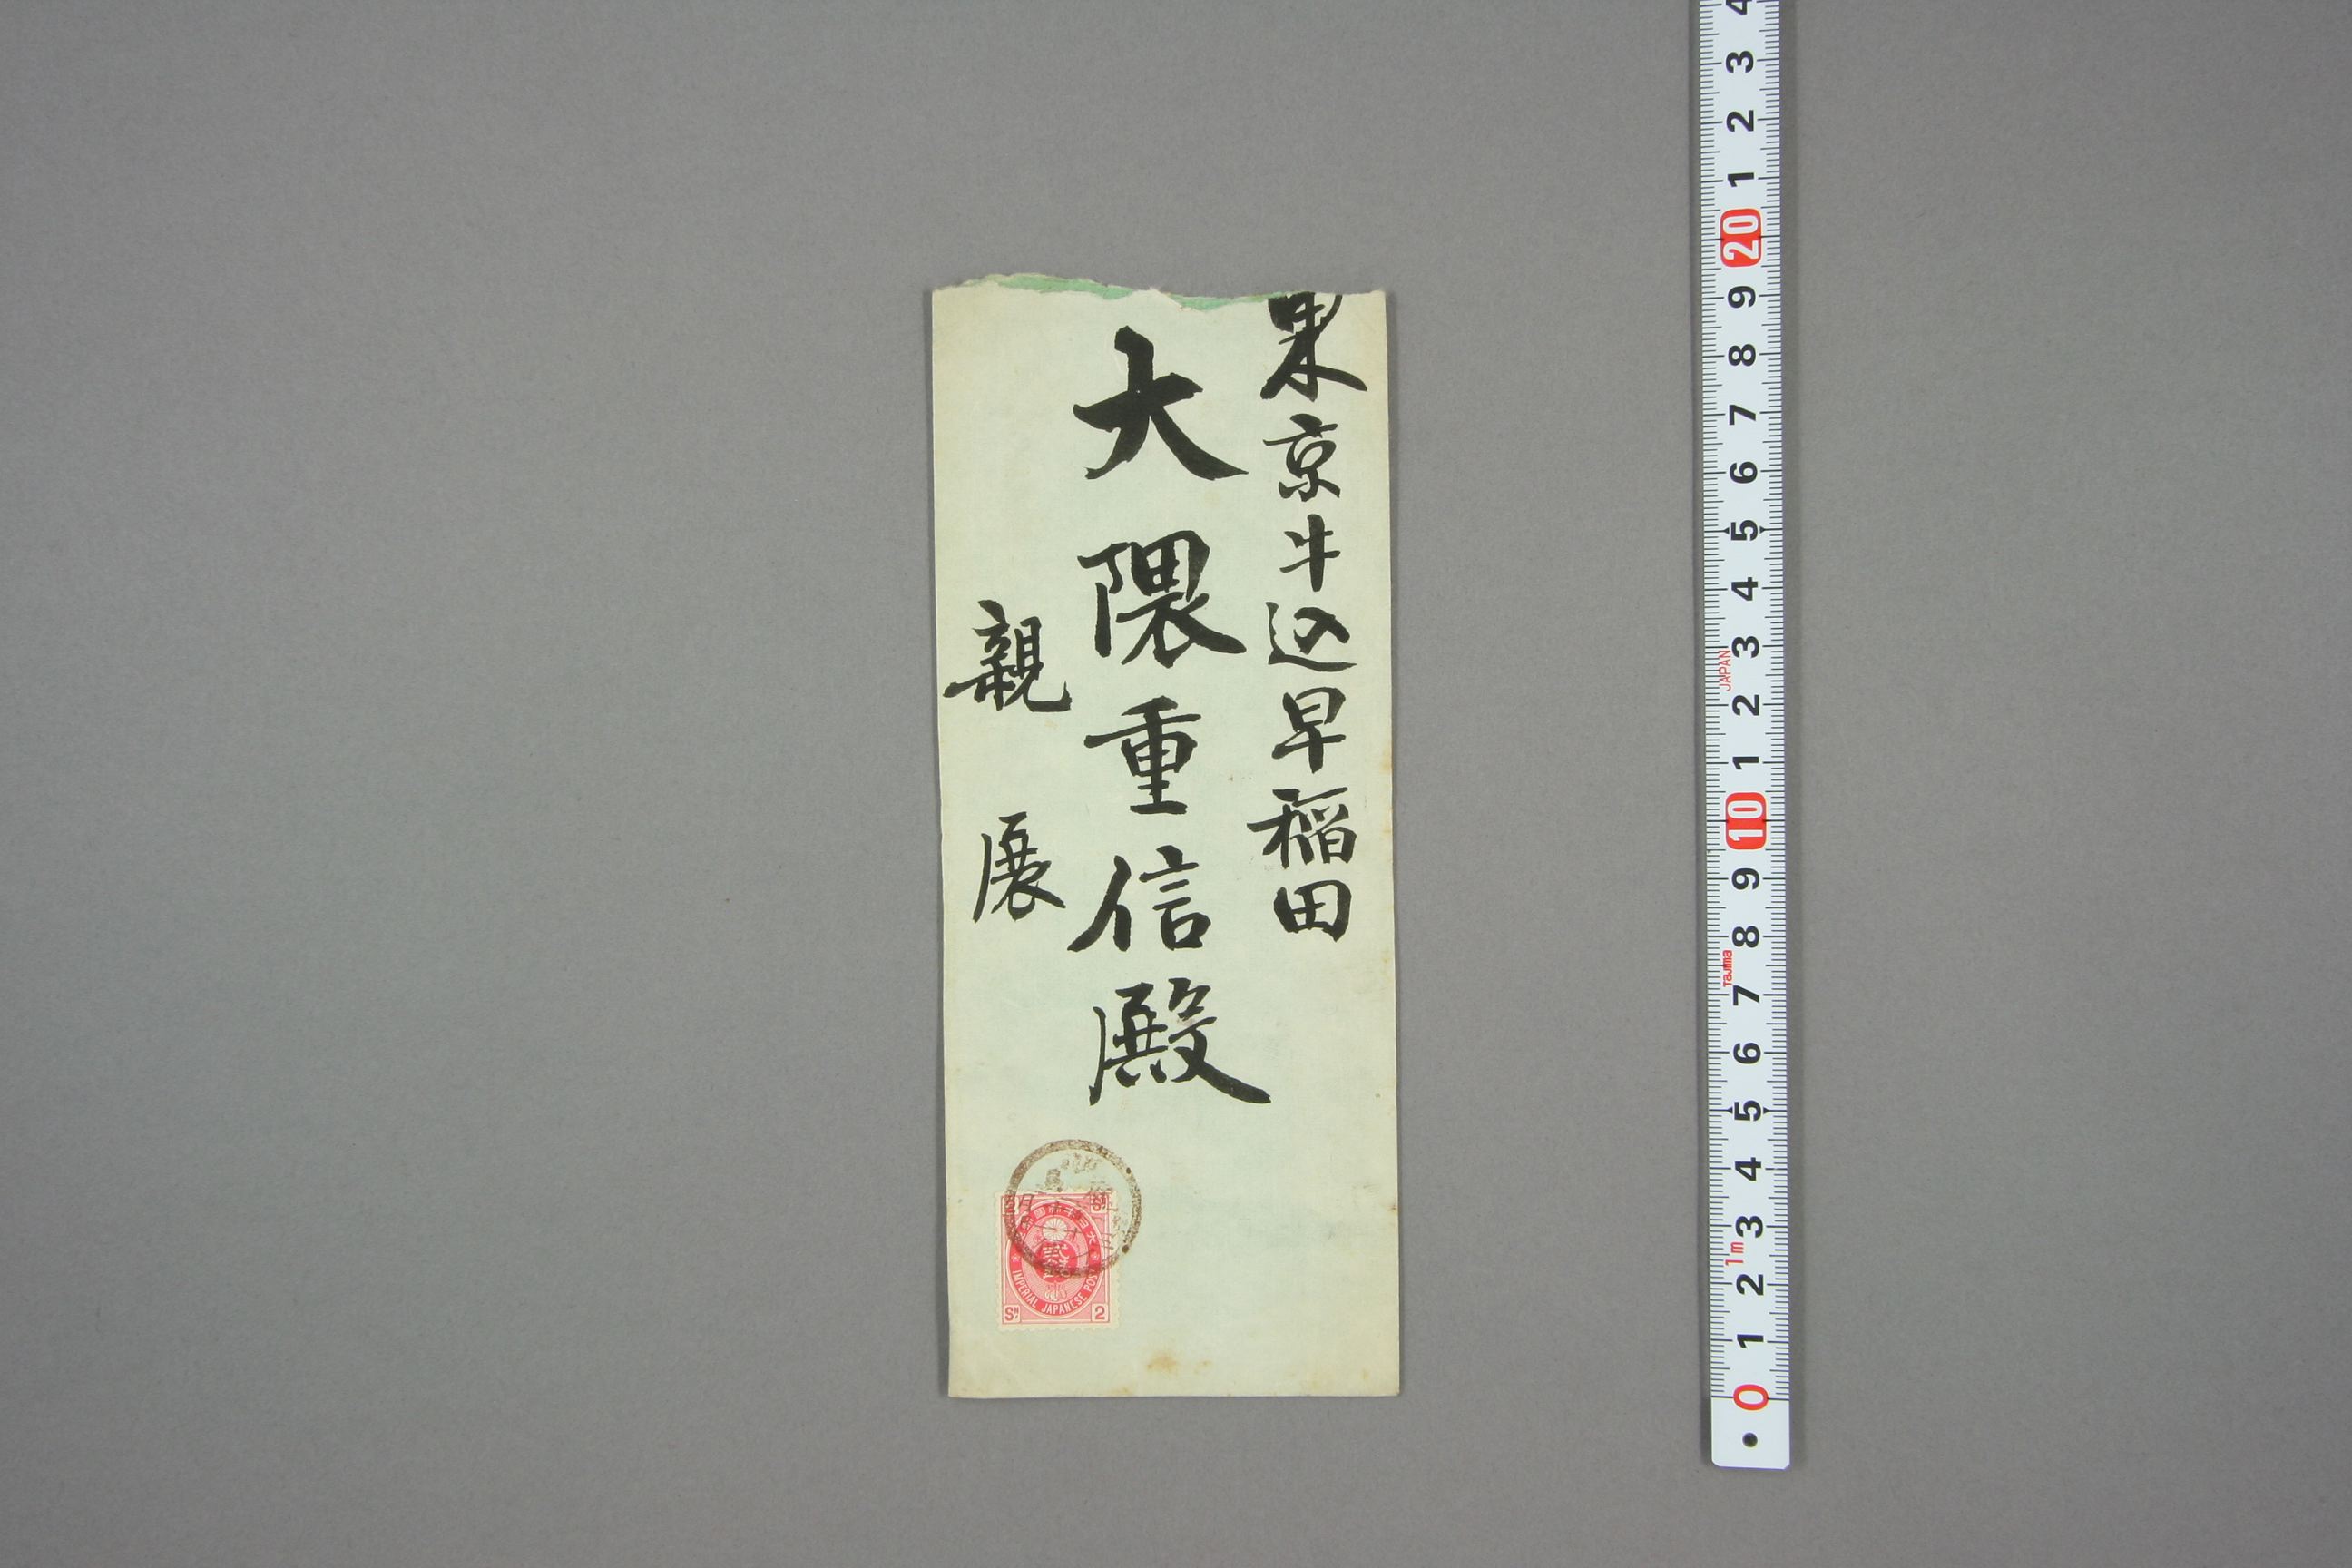 東京牛込早稲田
大隈重信殿
親展
大日本帝国郵便
貳銭
IMPERIAL JAPANESE POST
Sɴ 2
4 3 2 1 20 9 8 7 6 5 4 3 2 1 10 9 8 7 6 5 4 3 2 1 0
JAPAN
Tajima
1m